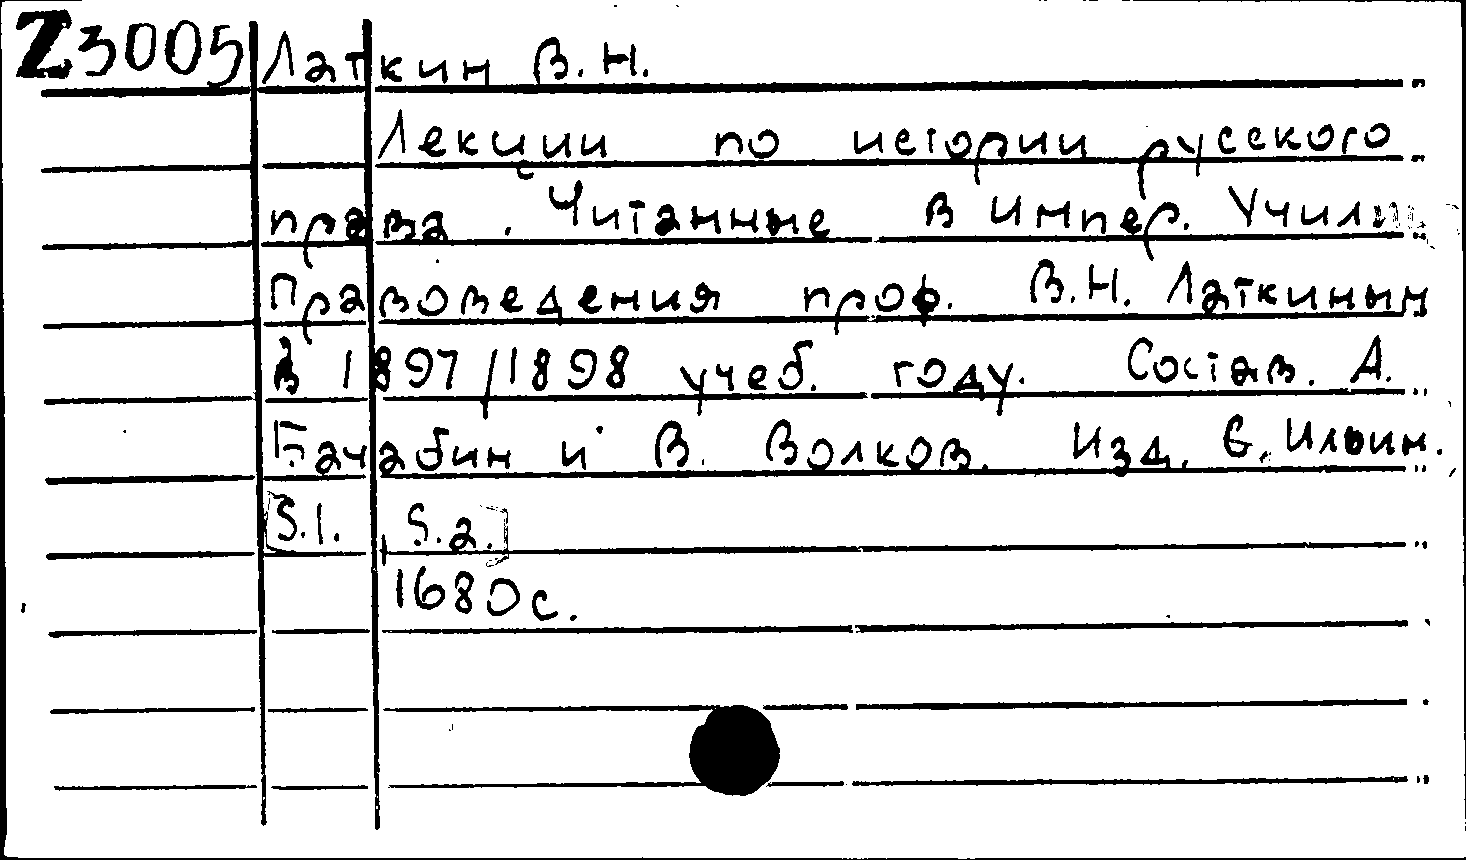 Z3005 Латкин В.Н.
Лекции по истории русского
права. Читанные в Импер. Училищ
Правоведения проф. В.Н. Латкиным
в 1897/1898 учеб. году. Состав. А.
Бачабин и В. Волков. Изд. Е. Ильин.
[S.l., S.a.]
1680 с.